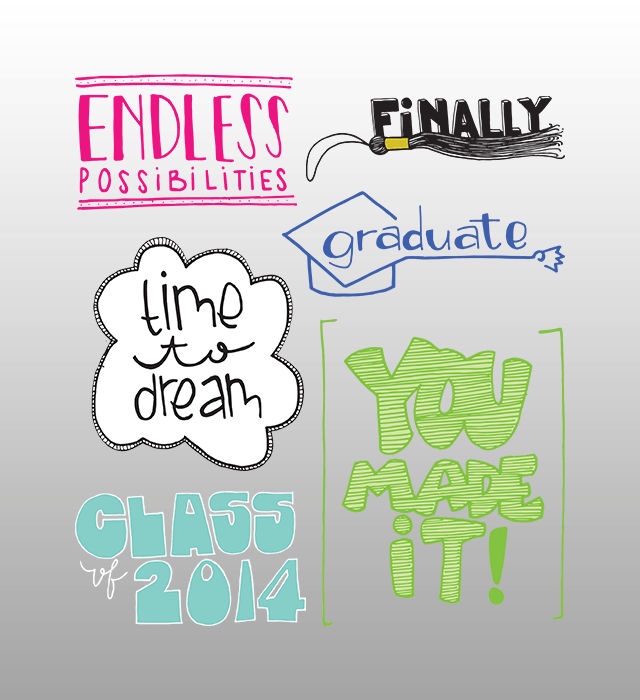 ENDLESS
POSSiBiLiTiES
FiNALLY
graduate
time
to
dream
YOU
MADE
iT!
CLASS
of 2014